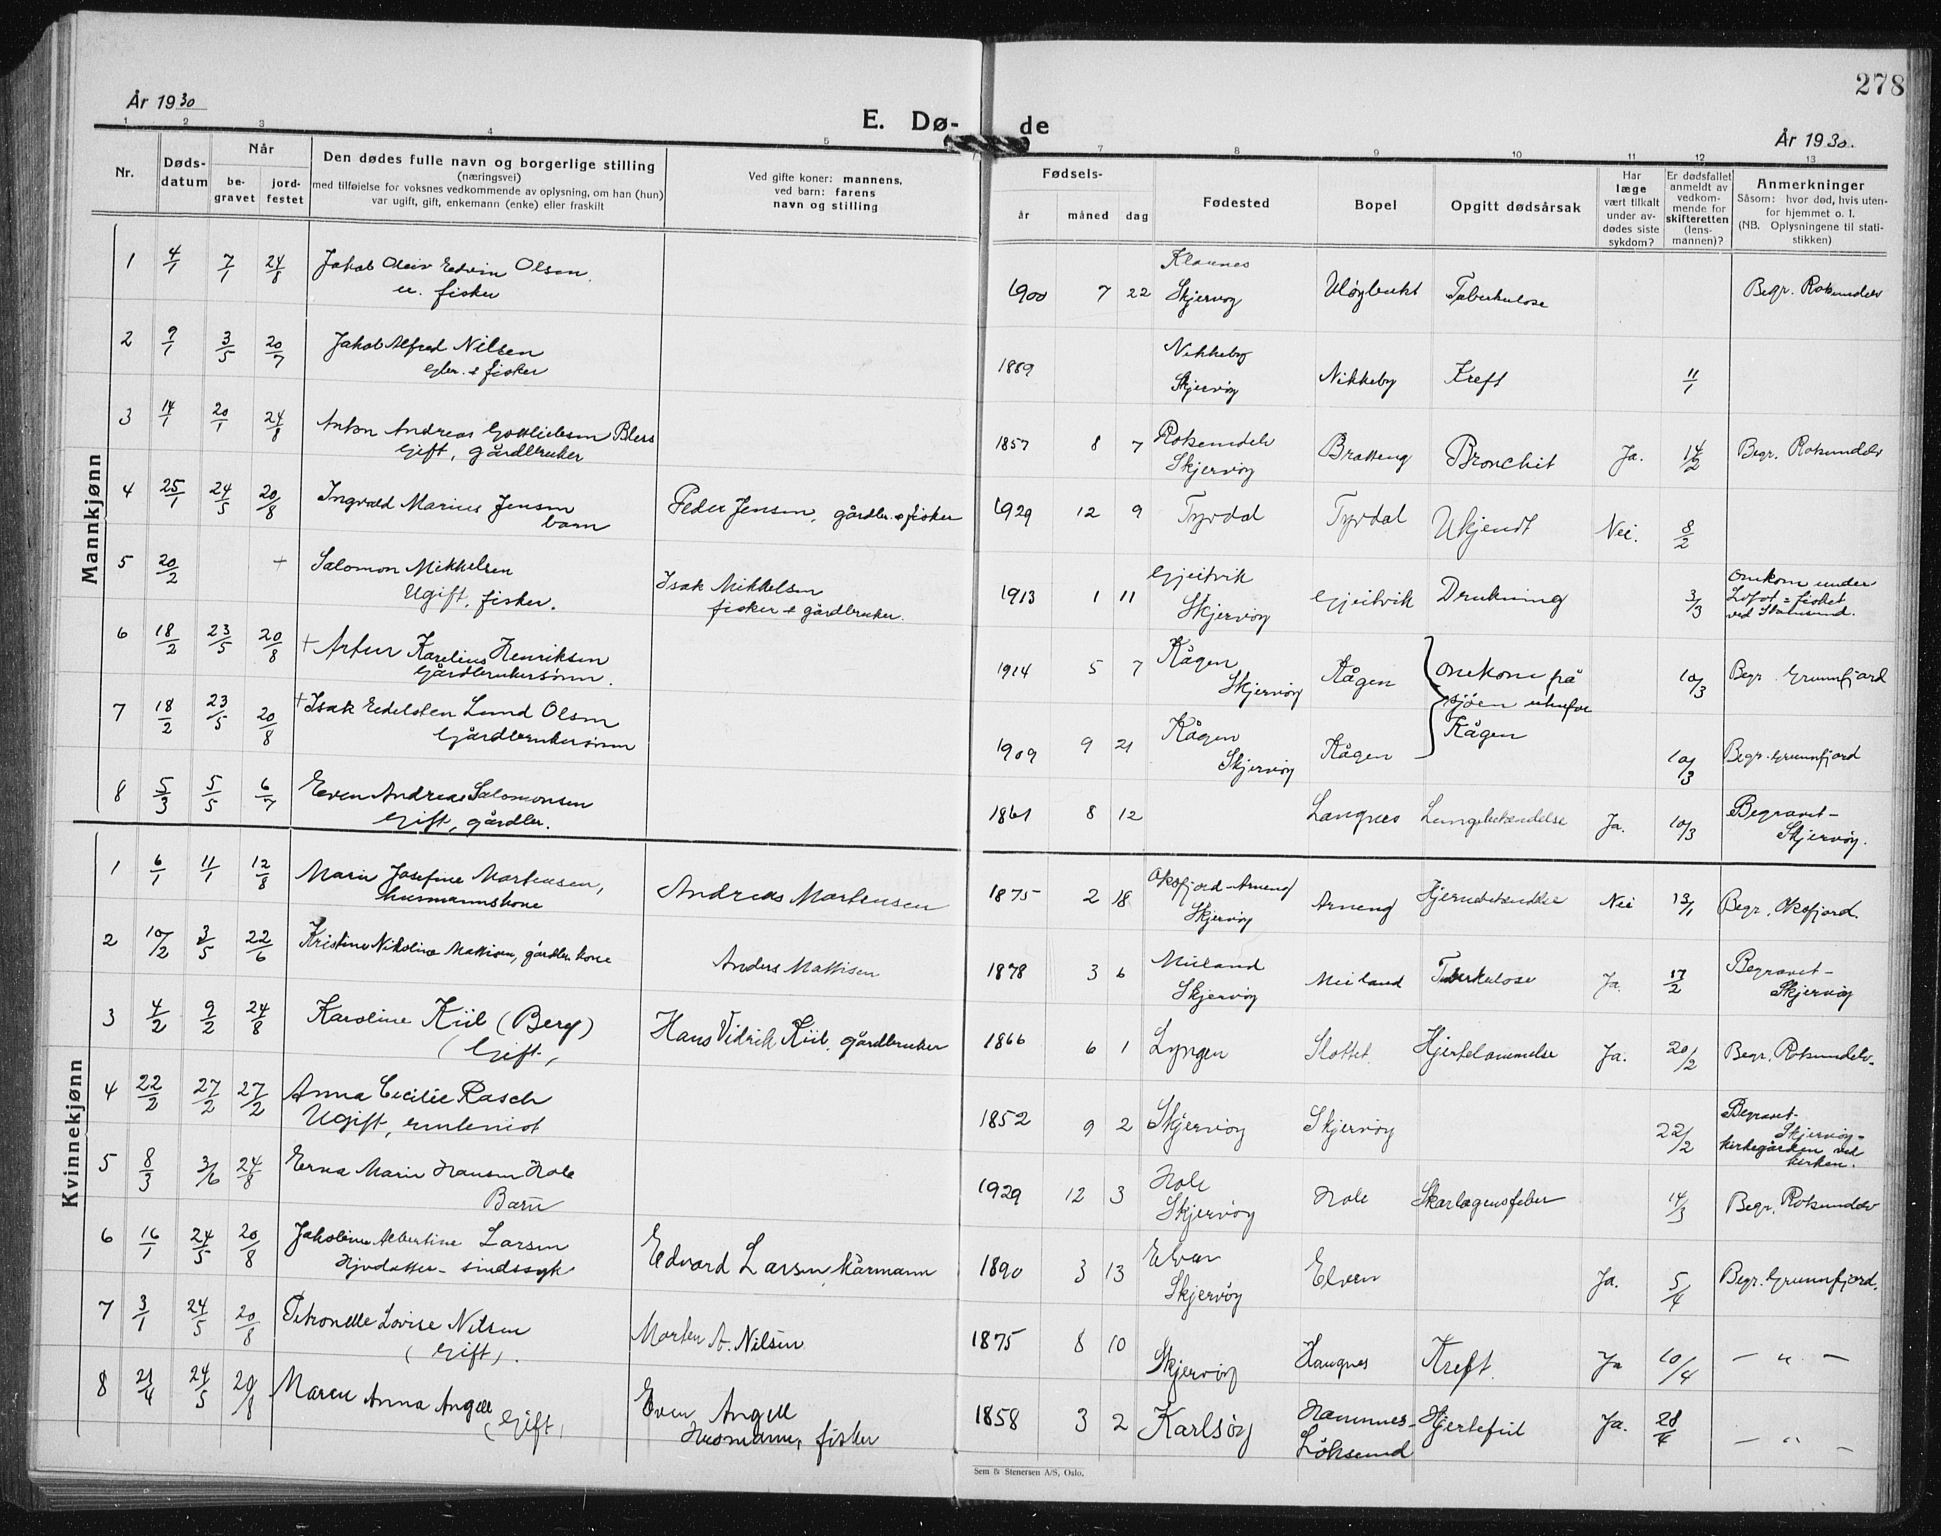 278
År 1930
E. Dø-
de
År 1930.
1 2 3 4 5
7 8 9 10 11 12 13
Nr.
Døds-
datum
Når
be-
gravet
jord-
festet
Den dødes fulle navn og borgerlige stilling
(næringsvei)
med tilføielse for voksnes vedkommende av oplysning, om han (hun)
var ugift, gift, enkemann (enke) eller fraskilt
Ved gifte koner: mannens,
ved barn: farens
navn og stilling
Fødsels-
år måned dag
Fødested
Bopel
Opgitt dødsårsak
Har
læge
vært tilkalt
under av-
dødes siste
sykdom?
Er dødsfallet
anmeldt av
vedkom-
mende for
skifteretten
(lens-
mannen)?
Anmerkninger
Såsom: hvor død, hvis uten-
for hjemmet o. l.
(NB. Oplysningene til stati-
stikken)
Mannkjønn
1 4/1 7/1 24/8 Jakob Edvin Olsen
fisker
1900 7 22 Skjervøy Uløybukt Tuberkulose Begr. Rotsundelv
2 9/1 3/5 20/7 Jakob Alfred Nilsen
gbr. & fisker
1889 Nikkeby
Skjervøy Nikkeby Kreft 11/1
3 14/1 20/1 24/8 Anton Andreas Gottliebsen
Gift, gårdbruker
1857 8 7 Rotsundelv
Skjervøy Bratteng Bronchit Ja. 14/2 Begr. Rotsundelv
4 25/1 24/5 20/8 Ingvald Marius Jensen
barn
Peder Jensen, gårdbr. & fisker
1929 12 9 Tyvdal Tyvdal Ukjendt Nei. 8/2
5 20/2 + Salomon Mikkelsen
Ugift, fisker.
Isak Mikkelsen
fisker & gårdbruker.
1913 1 11 Gjeitvik
Skjervøy Gjeitvik Drukning 3/3 Omkom under
Lofot-fisket
ved Stamsund.
6 18/2 23/5 20/8 + Artur Karelius Henriksen
Gårdbrukersønn.
1914 5 7 Kågen
Skjervøy Kågen Omkom på
sjøen utenfor
Kågen 10/3 Begr. Grunnfjord
7 18/2 23/5 20/8 + Isak Edelsten Lund Olsen
Gårdbrukersønn
1909 9 21 Kågen
Skjervøy Kågen 10/3 Begr. Grunnfjord
8 5/3 5/5 6/7 Even Andreas Salomonsen
Gift, gårdbr.
1861 8 12 Langnes Lungebetændelse Ja. 10/3 Begravet-
Skjervøy.
Kvinnekjønn
1 6/1 11/1 12/8 Marie Josefine Mortensen,
husmannskone
Andreas Mortensen
1875 2 18 Oksfjord-Arneng
Skjervøy Arneng Hjernebetændelse Nei 13/1 Begr. Oksfjord.
2 10/2 3/5 22/6 Kristine Nikoline Mattisen, gårdbr. kone
Anders Mattisen
1878 3 6 Meiland
Skjervøy Meiland Tuberkulose Ja. 17/2 Begravet-
Skjervøy
3 4/2 9/2 24/8 Karoline Kiil (Berg)
(Gift,
Hans Vidrik Kiil, gårdbruker
1866 6 1 Lyngen Slottet Hjertelammelse Ja. 20/2 Begr. Rotsundelv.
4 22/2 27/2 27/2 Anna Cecilie Rasch
Ugift,
1852 9 2 Skjervøy Skjervøy 22/2 Begravet-
Skjervøy-
kirkegården ved
kirken.
5 8/3 3/6 24/8 Erna Marie Hansen Hole
Barn
1929 12 3 Hole
Skjervøy Hole Skarlagensfeber 14/3 Begr. Rotsundelv
6 16/1 24/5 20/8 Jakobine Albertine Larsen
sindssyk
Edvard Larsen, kårmann
1890 3 13 Elven
Skjervøy Elven Ja. 5/4 Begr. Grunnfjord.
7 3/1 24/5 20/8 Petronelle Lovise Nilsen
(Gift).
Morten A. Nilsen
1875 8 10 Skjervøy Haugnes Kreft. Ja 10/4 - " -
8 21/4 24/5 20/8 Maren Anna Angell
(Gift,
Even Angell
Husmann, fisker
1858 3 2 Karlsøy Hamnes-
Løksund Hjertefeil Ja. 28/4 - " -
Sem & Stenersen A/S, Oslo.